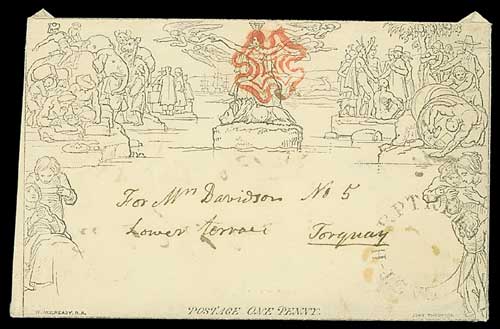 For Mrs Davidson No 5
Lower terrace Torquay
W. MULREADY. R.A.
POSTAGE ONE PENNY.
JOHN THOMPSON